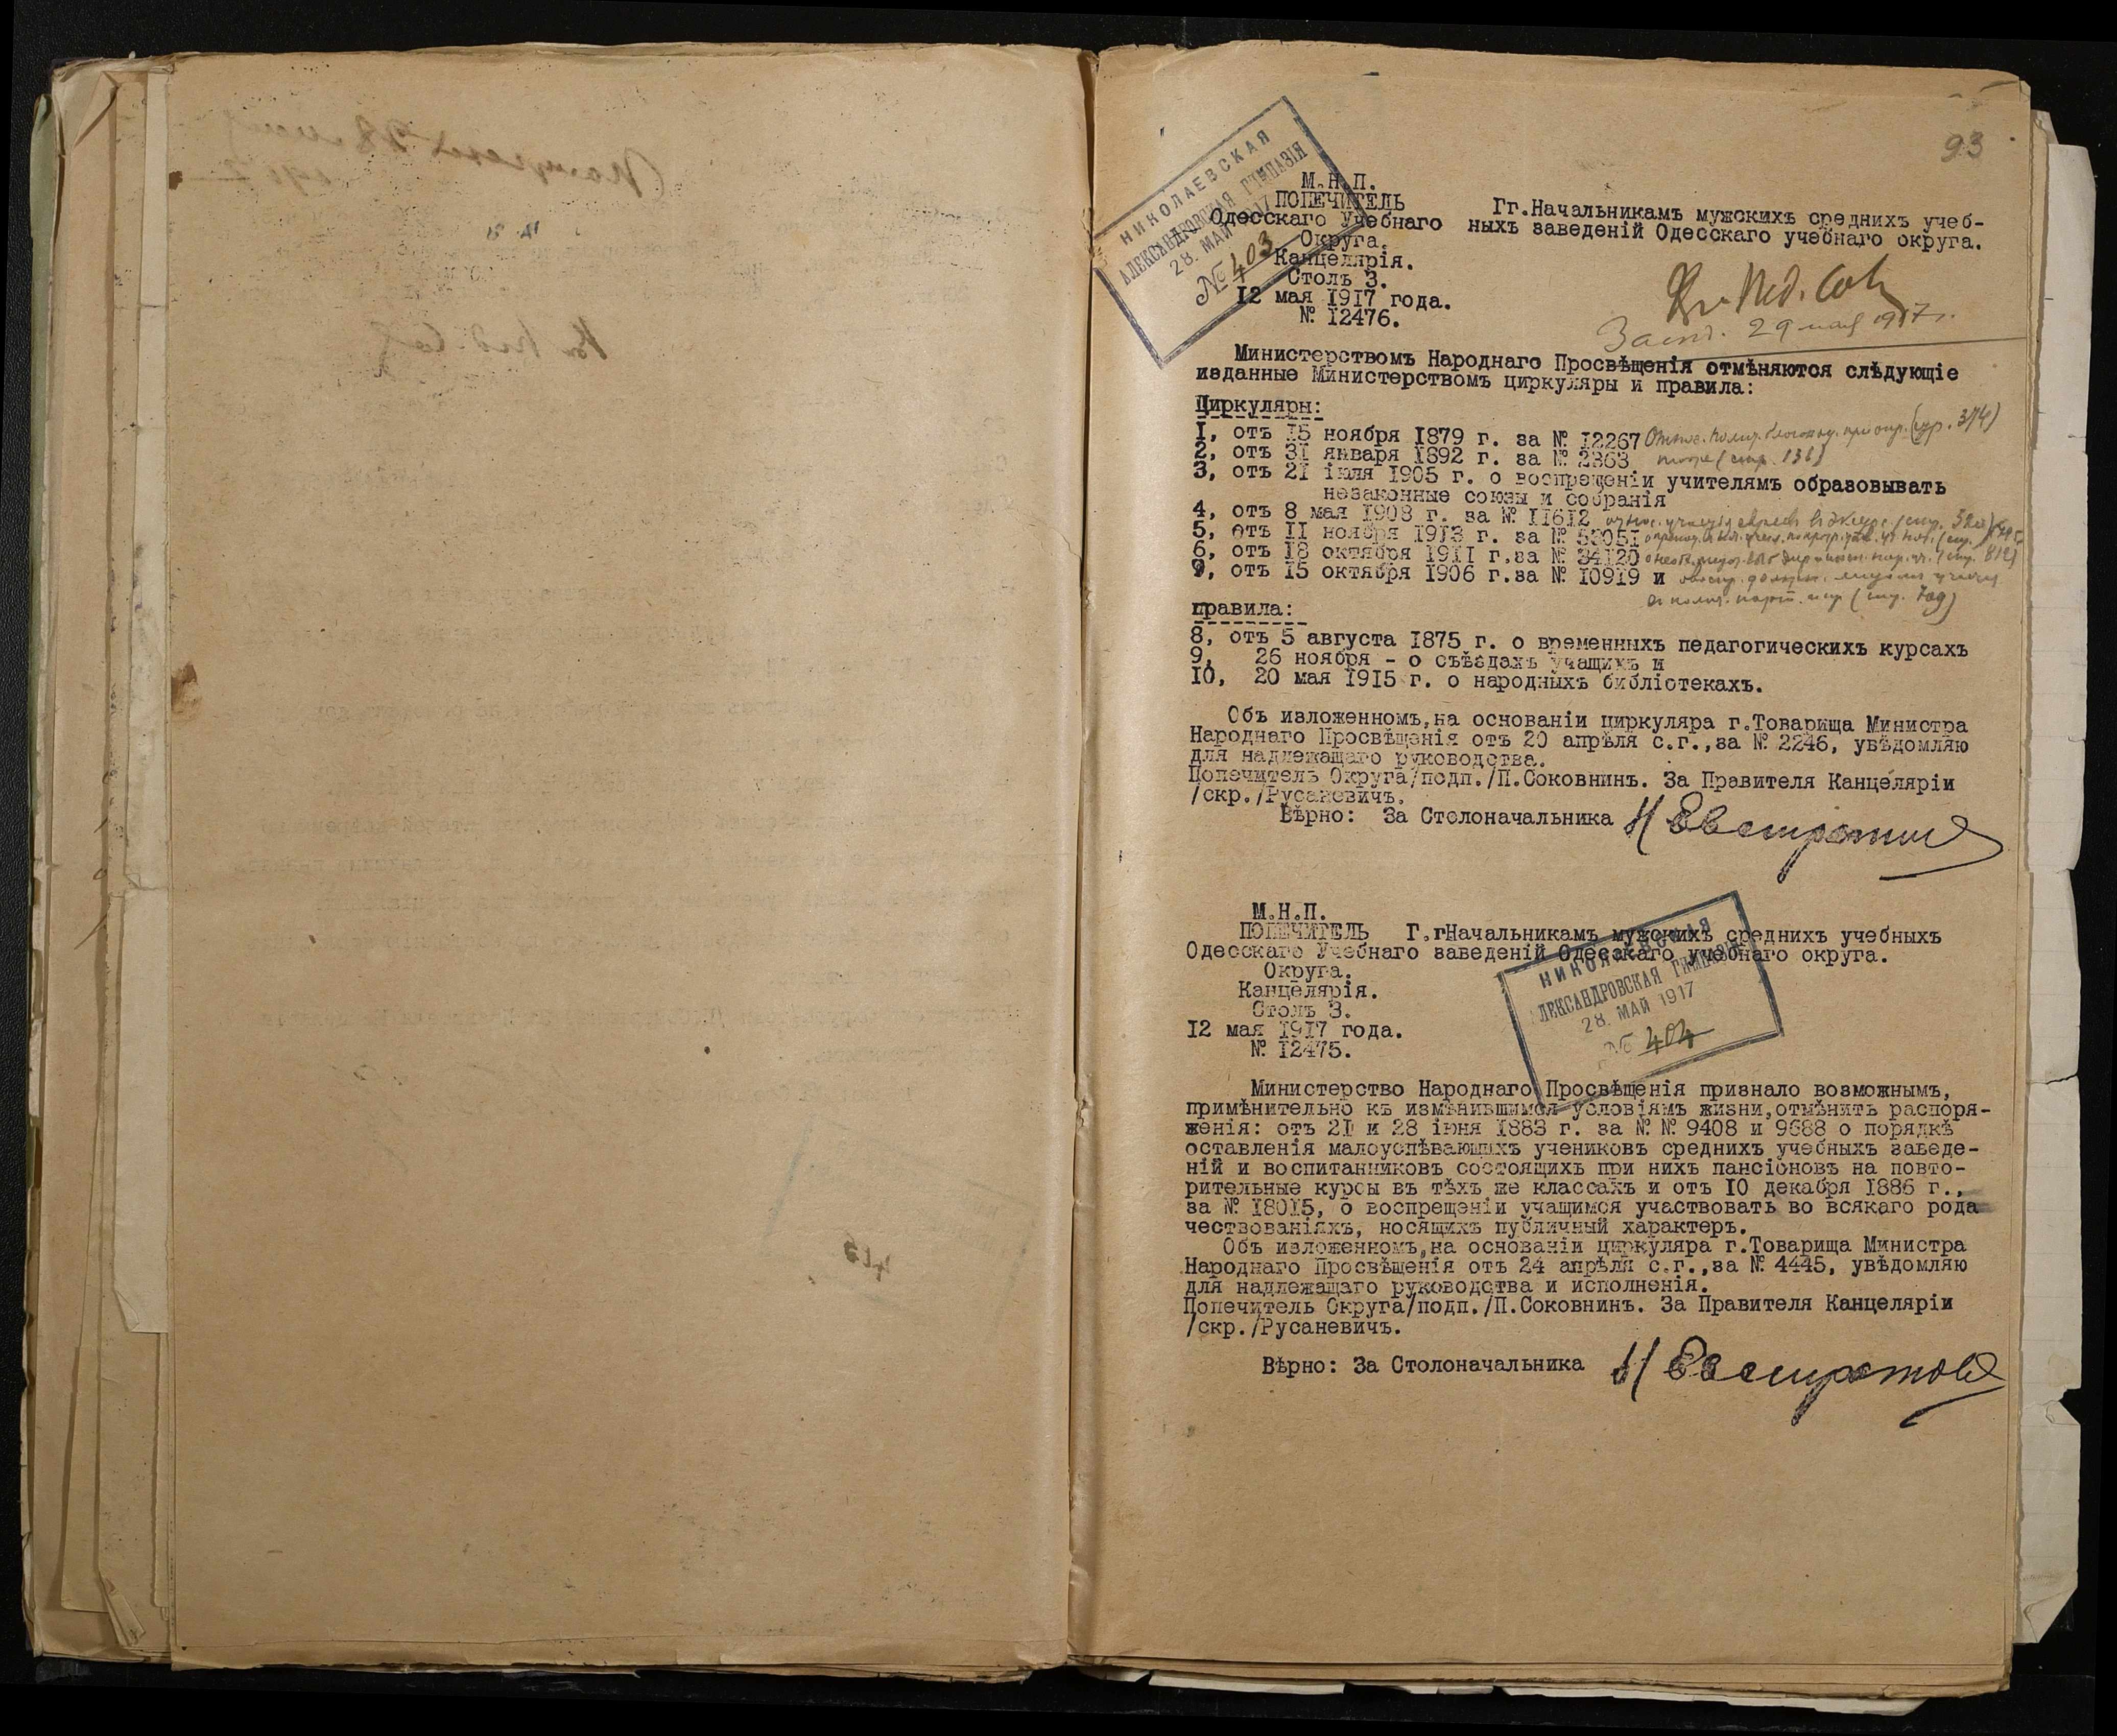 93
НИКОЛАЕВСКАЯ
АЛЕКСАНДРОВСКАЯ ГИМНАЗІЯ
28. МАЙ 1917
№ 403
М.Н.П.
ПОПЕЧИТЕЛЬ
Одесскаго Учебнаго
Округа.
Канцелярія.
Столъ 3.
12 мая 1917 года.
№ 12476.
Гг.Начальникамъ мужскихъ среднихъ учеб-
ныхъ заведеній Одесскаго учебнаго округа.
Въ Пед. Сов
29 мая 1917 г.
Министерствомъ Народнаго Просвѣщенія отмѣняются слѣдующіе
изданные Министерствомъ циркуляры и правила:
Циркуляры:
1, отъ 15 ноября 1879 г. за № 12267 (стр. 374)
2, отъ 31 января 1892 г. за № 2363 тоже (стр. 136)
3, отъ 21 іюля 1905 г. о воспрещеніи учителямъ образовывать
незаконные союзы и собранія
4, отъ 8 мая 1908 г. за № 11612
5, отъ 11 ноября 1913 г. за №
6, отъ 18 октября 1911 г.за № 34120 (стр. 812)
отъ 15 октября 1906 г.за № 10919 и
правила:
8, отъ 5 августа 1875 г. о временныхъ педагогическихъ курсахъ
9, 26 ноября - о съѣздахъ учащихъ и
10, 20 мая 1915 г. о народныхъ библіотекахъ.
Объ изложенномъ,на основаніи циркуляра г.Товарища Министра
Народнаго Просвѣщенія отъ 20 апрѣля с.г.,за № 2246, увѣдомляю
для надлежащаго руководства.
Попечитель Округа/подп./П.Соковнинъ. За Правителя Канцеляріи
/скр./Русаневичъ.
Вѣрно: За Столоначальника
М.Н.П.
ПОПЕЧИТЕЛЬ Г.гНачальникамъ мужскихъ среднихъ учебныхъ
Одесскаго Учебнаго заведеній Одесскаго учебнаго округа.
Округа.
Канцелярія.
Столъ 3.
12 мая 1917 года.
№ 12475.
НИКОЛАЕВСКАЯ
АЛЕКСАНДРОВСКАЯ ГИМНАЗІЯ
28. МАЙ 1917
№ 404
Министерство Народнаго Просвѣщенія признало возможнымъ,
примѣнительно къ измѣнившимся условіямъ жизни,отмѣнить распоря-
женія: отъ 21 и 28 іюня 1883 г. за № № 9408 и 9688 о порядкѣ
оставленія малоуспѣвающихъ учениковъ среднихъ учебныхъ заведе-
ній и воспитанниковъ состоящихъ при нихъ пансіоновъ на повто-
рительные курсы въ тѣхъ же классахъ и отъ 10 декабря 1886 г.,
за № 18015, о воспрещеніи учащимся участвовать во всякаго рода
чествованіяхъ, носящихъ публичный характеръ.
Объ изложенномъ,на основаніи циркуляра г.Товарища Министра
Народнаго Просвѣщенія отъ 24 апрѣля с.г.,за № 4445, увѣдомляю
для надлежащаго руководства и исполненія.
Попечитель Округа/подп./П.Соковнинъ. За Правителя Канцеляріи
/скр./Русаневичъ.
Вѣрно: За Столоначальника